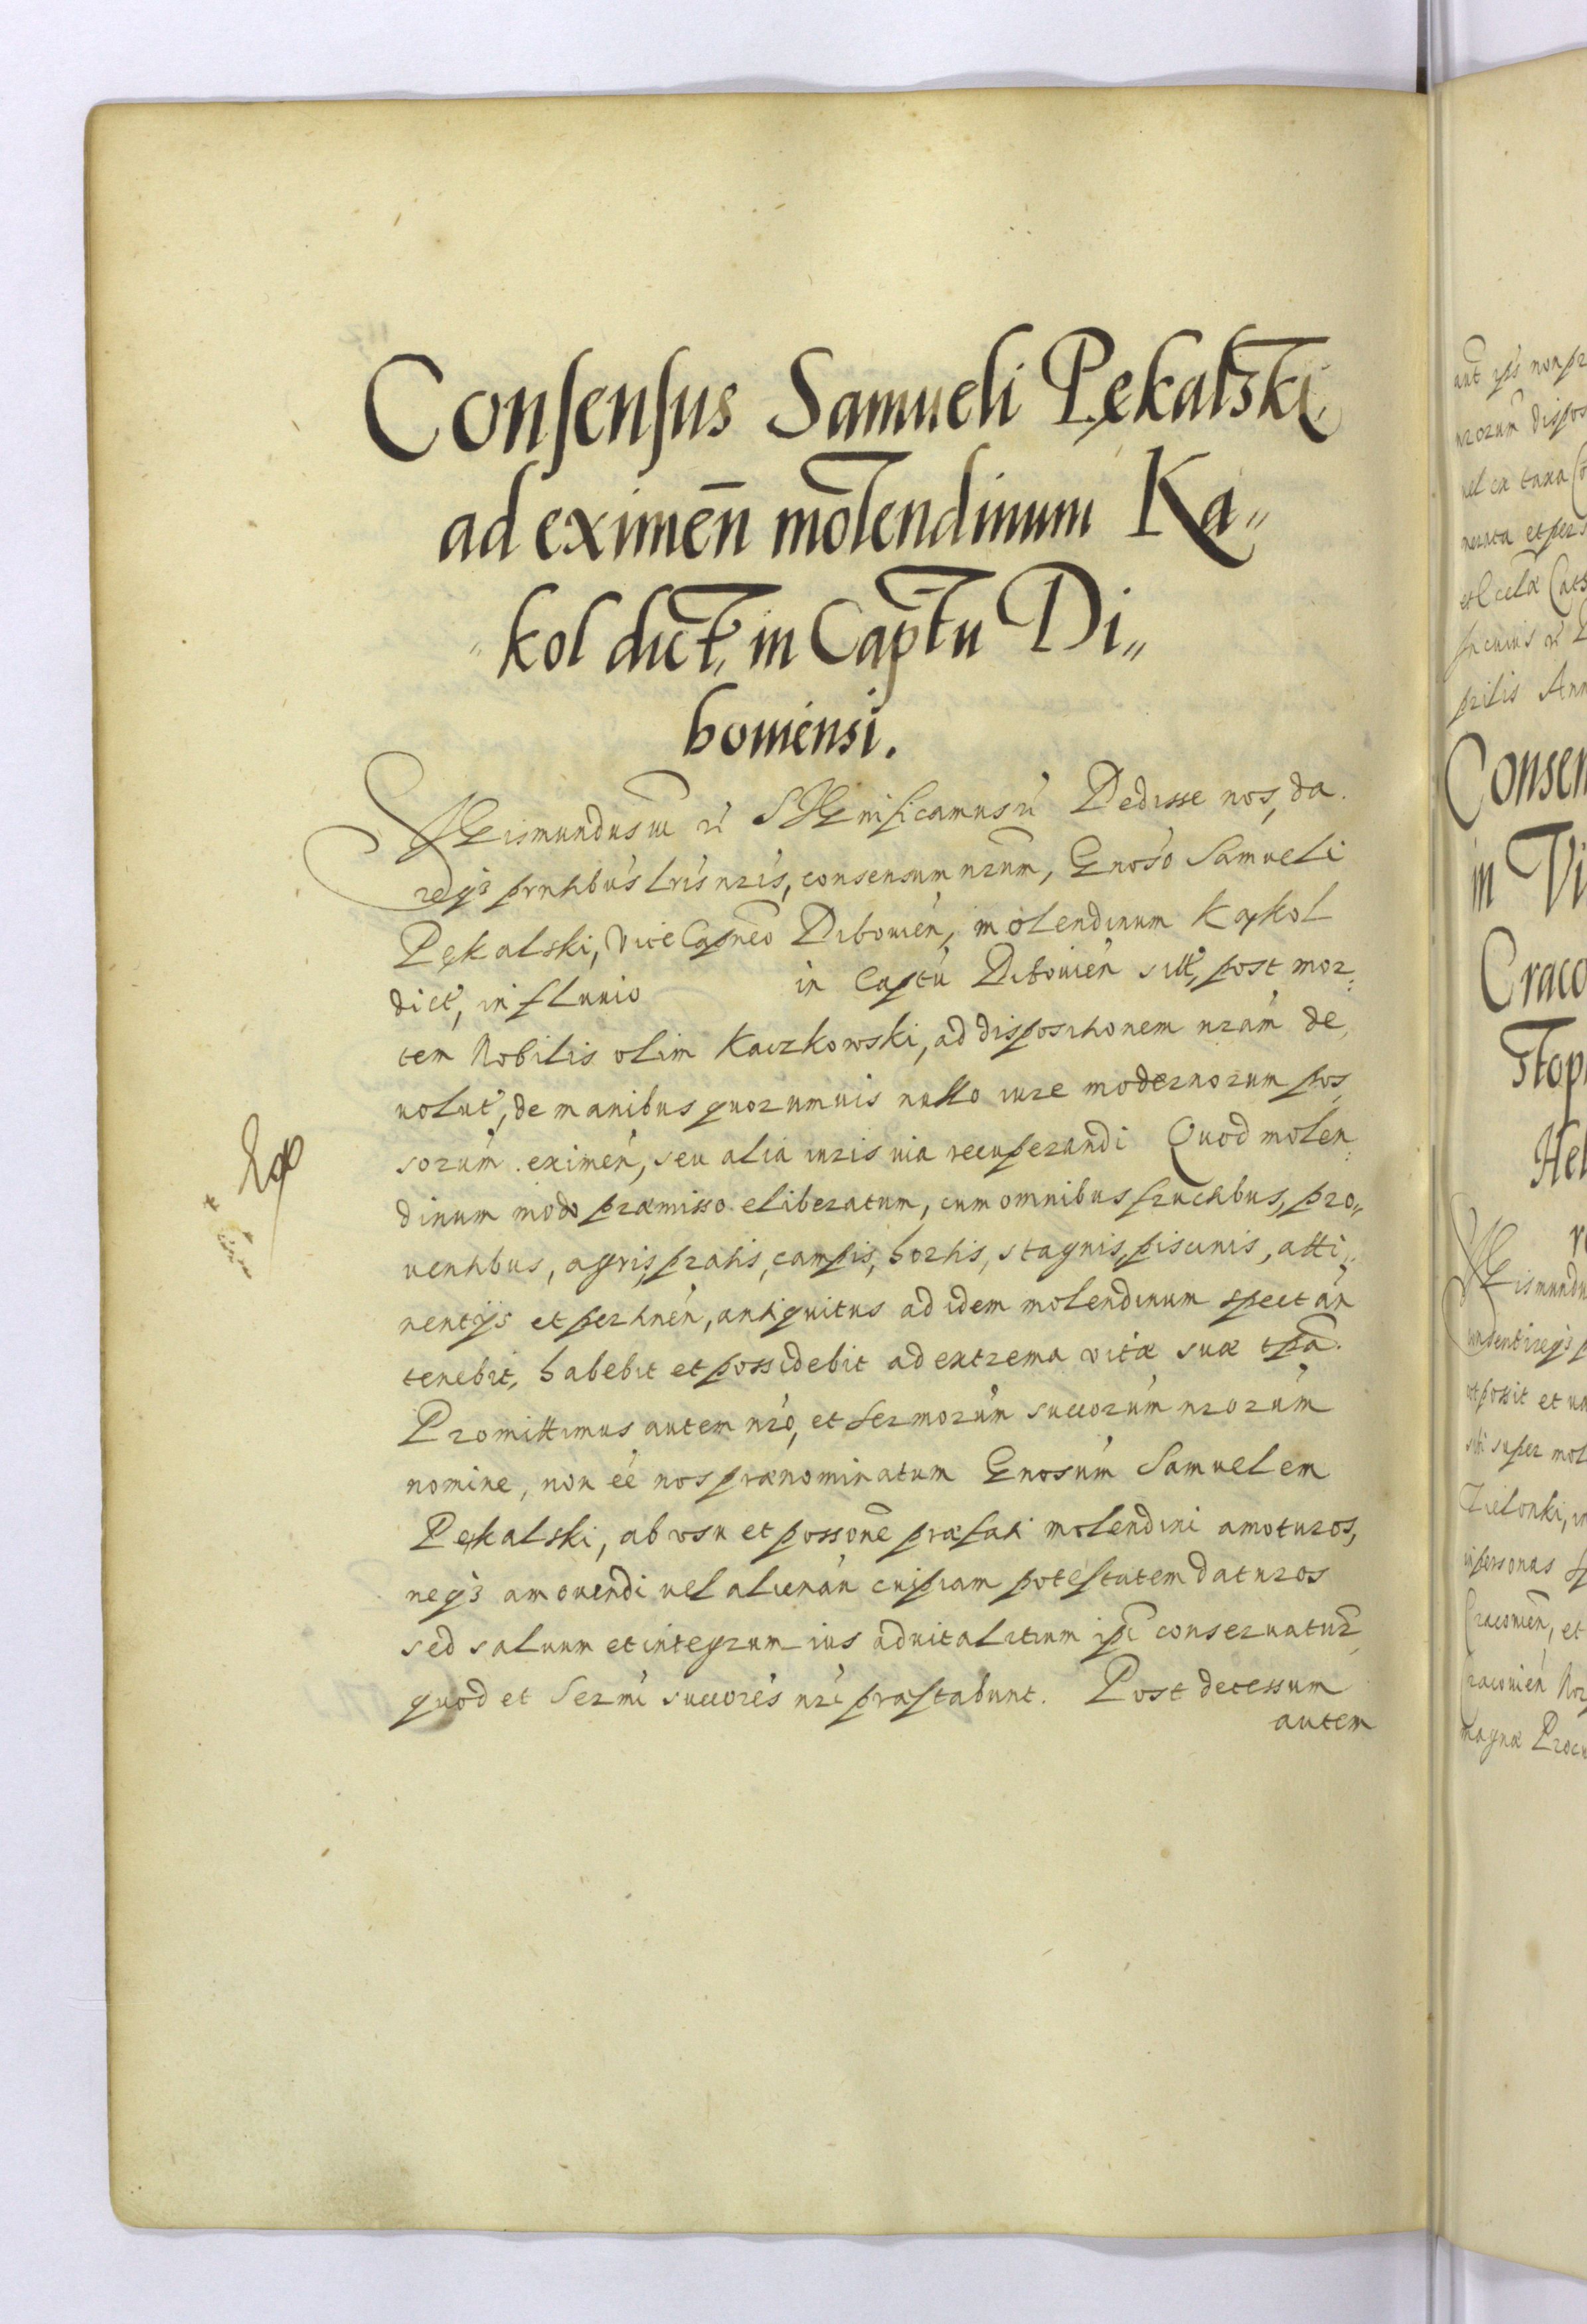 Consensus Samueli Pękalski
ad eximeñ molendinum Ka〃
〃kol dict. in Captu Di〃
bouiensi.
Sigismundus III etc. Significamus etc. Dedisse nos, da
reqȝ prntibus lris nris, consensum nrum, Gnoso Samueli
Pękalski, Vice Capneo Dibouien, molendinum Kąkol
dict, in fluuio in Captu Dibouien sitt, post mor:
tem Nobilis olim Kaczkowski, ad dispositionem nram de,
uolut, de manibus quorumuis nullo iure modernorum pos,
sorum eximen, seu alia iuris uia recuperandi Quod molen:
dinum modo præmisso eliberatum, cum omnibus fructibus, pro〃
uentibus, agris, pratis, campis, hortis, stagnis, piscinis, atti〃
nentijs et pertinen, antiquitus ad idem molendinum spectan
tenebit, habebit et possidebit ad extrema vitæ suæ tpa.
Promittimus autem nro, et Sermorum succorum nrorum
nomine, non eé nos prænominatum Gnosum Samuelem
Pękalski, ab vsu et possone præfati molendini amoturos,
neqȝ amouendi uel alienan cuipiam potestatem daturos
sed saluum et integrum ius aduitalitium ipi conseruatur
quod et Sermi succores nri præstabunt. Post decessum
autem
aut ips non pr
nrorum dispos
uel ex taxa
nerata et pers
prilis Ann
Consen
in Vi
Craco
Stop
Hel
Sigismundu
ut possit et
super mol
Zielonki, in
personas
Cracouien, et
Cracouien
magnæ Proc